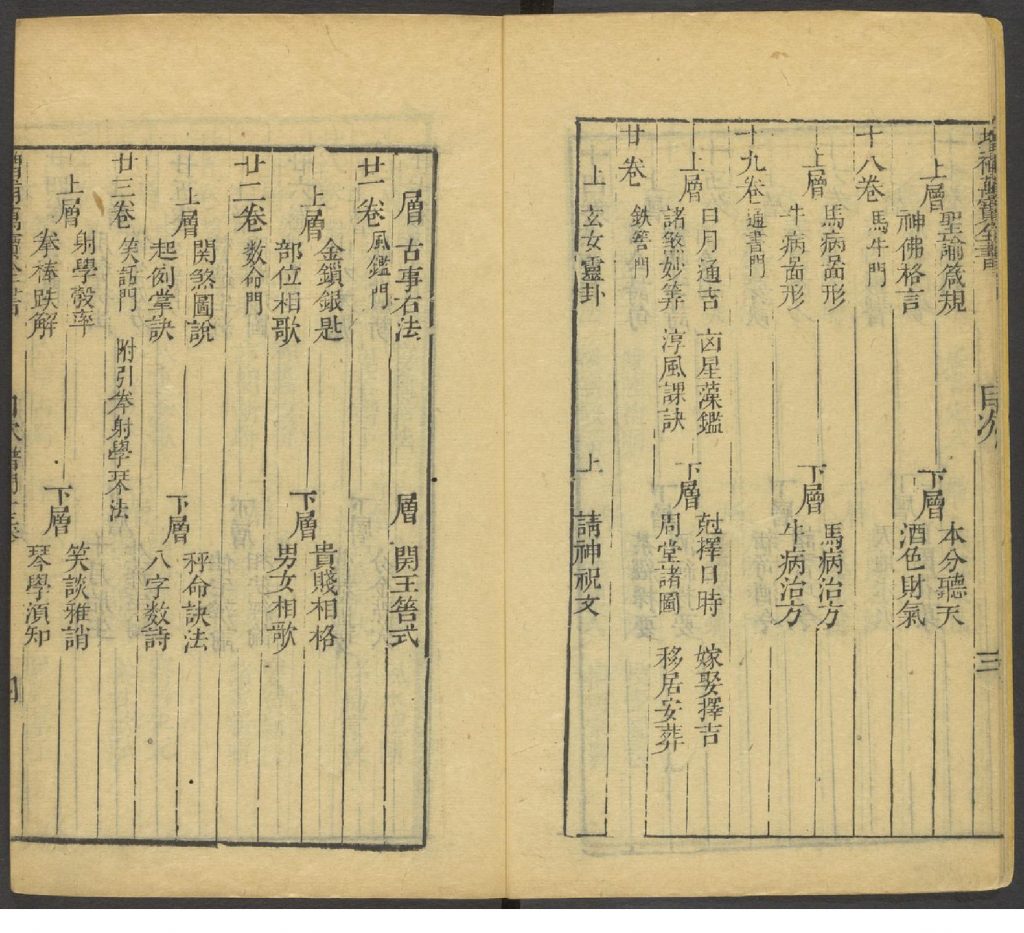 增補萬寶全書 目次 三
上層 聖諭箴規 下層 本分聽天
神佛格言 酒色財氣
十八卷 馬牛門
上層 馬病啚形 下層 馬病治方
牛病啚形 牛病治方
十九卷 通書門
上層 日月通吉 凶星藻鑑 下層 尅擇日時 嫁娶擇吉
諸煞妙筭 淳風課訣 周堂諸圖 移居安葬
廿卷 鉄筶門
上 玄女靈卦 上 請神祝文
層 古事右法 層 関王筶式
廿一卷 風鑑門
上層 金鎖銀匙 下層 貴賤相格
部位相歌 男女相歌
廿二卷 数命門
上層 関煞圖說 下層 秤命訣法
起例掌訣 八字数詩
廿三卷 笑話門 附引拳射學琴法
上層 射學彀率 下層 笑談雅誚
拳棒跌解 琴學湏知